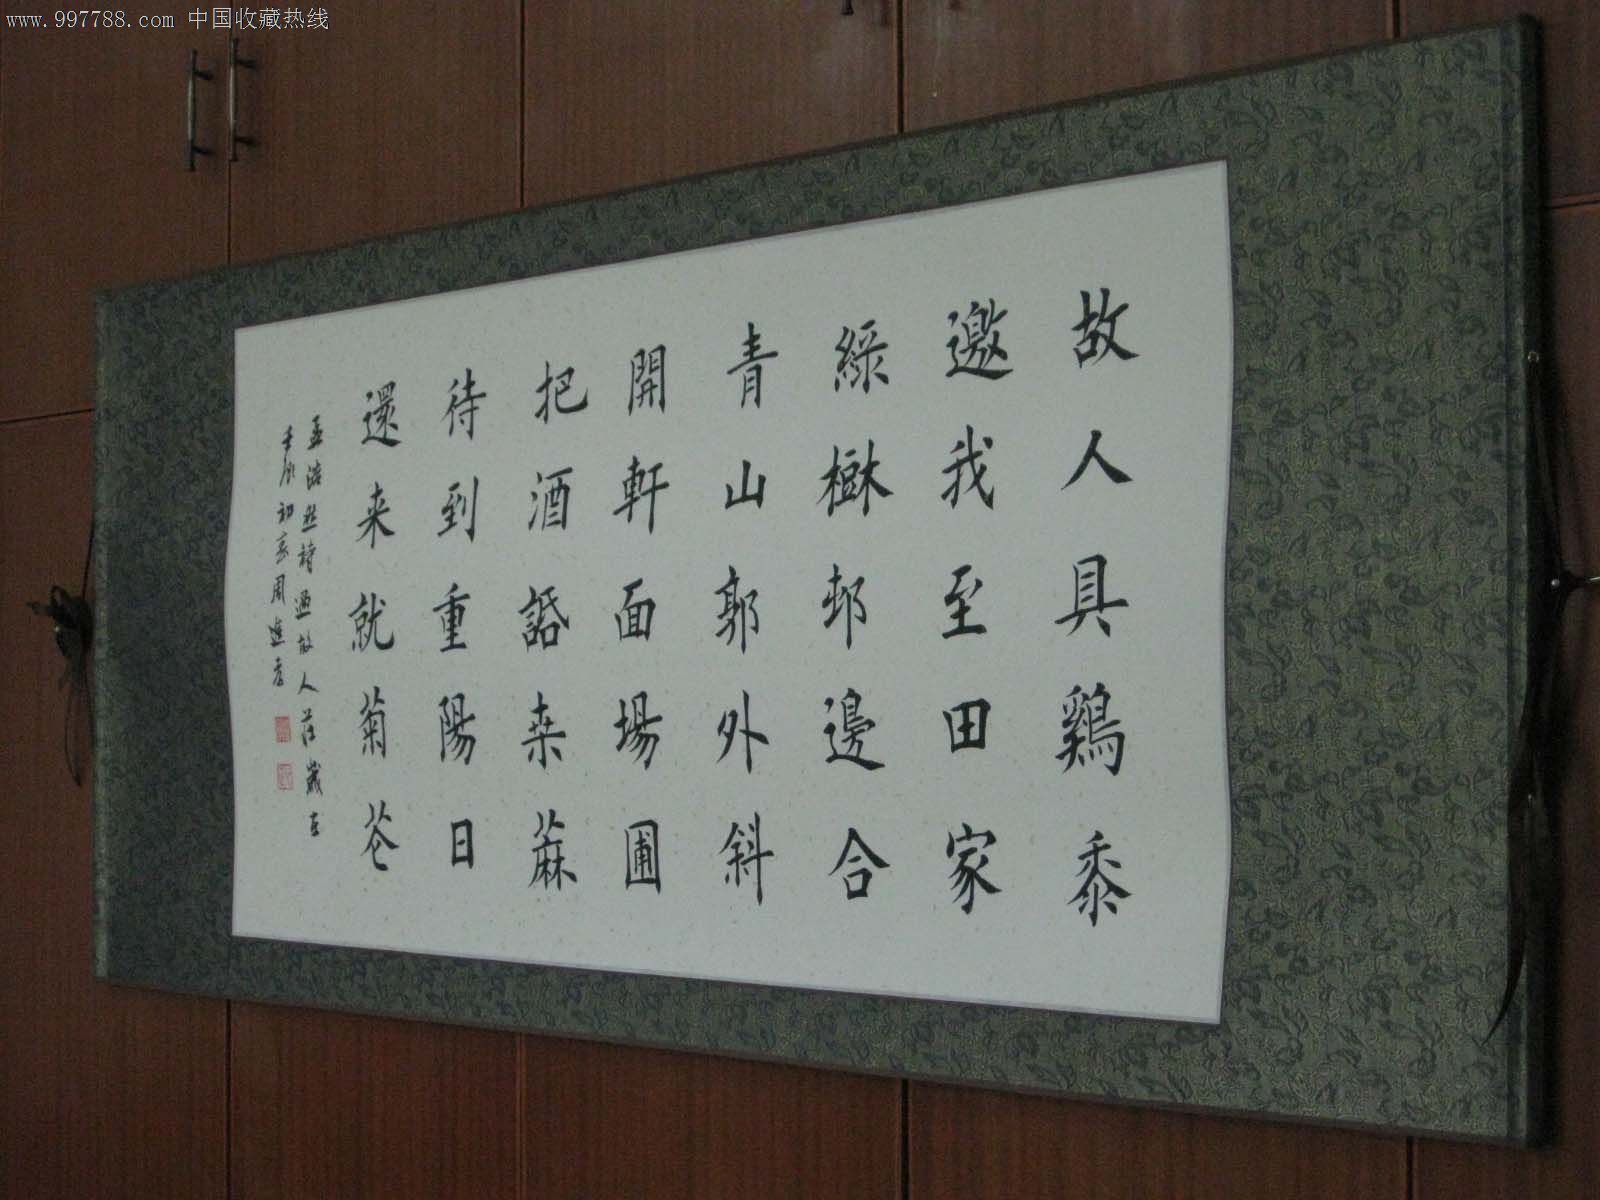 www.997788.com 中国收藏热线
故人具鷄黍
邀我至田家
綠樹邨邊合
青山郭外斜
開軒面場圃
把酒話桒蔴
待到重陽日
還来就菊苍
孟浩然詩過故人莊歲在
壬辰初夏周進書